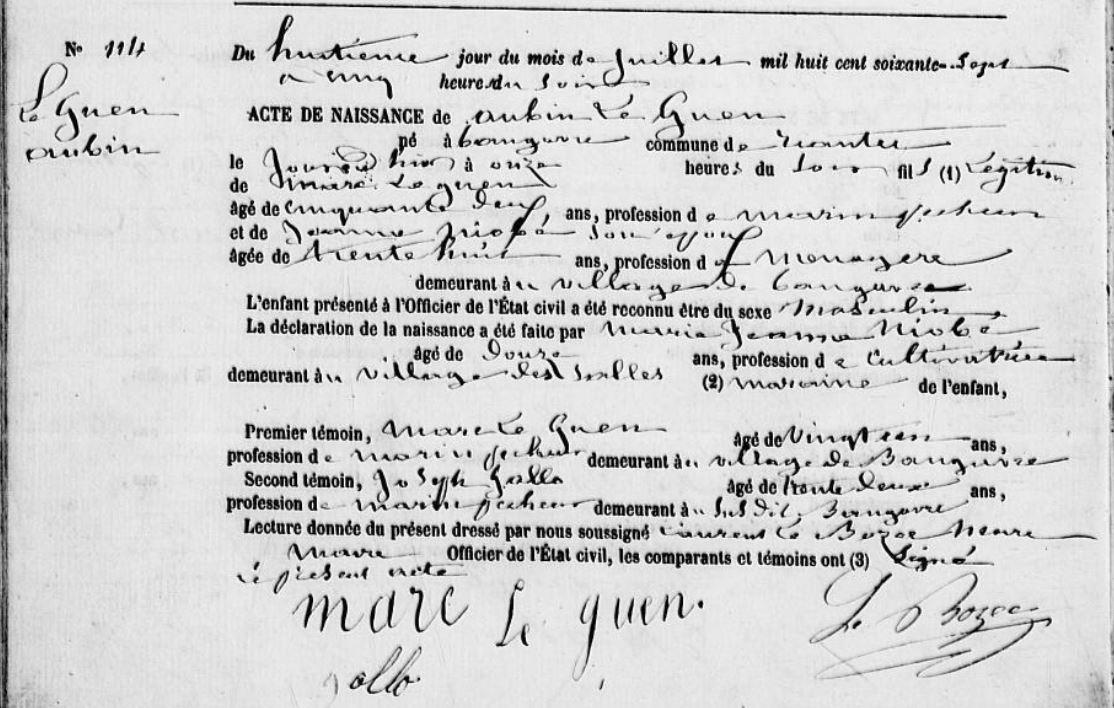 N° 114
Du huitieme jour du mois de juillet mil huit cent soixante-Sept
a cinq heures du Soir
Le Guen
aubin
ACTE DE NAISSANCE de aubin Le Guen
né à commune de
le Jourd'hui à onze heures du fils (1) Légitime
de Marc Le guen
âgé de cinquante deux, ans, profession de marin pecheur
et de Jeanne Niobé Son epouse
âgée de trente huit ans, profession d menagere
demeurant à u village de
L'enfant présenté à l'Officier de l'État civil a été reconnu être du sexe Masculin,
La déclaration de la naissance a été faite par Marie Jeanne Niobé
âgé de ans, profession de cultivatrice
demeurant à u village des Salles (2) de l'enfant,
Premier témoin, Marc Le Guen âgé de ans,
profession de marin pecheur demeurant à u village de
Second témoin, Joseph Gallo âgé de trente deux ans,
profession de marin pecheur demeurant à u Susdit
Lecture donnée du présent dressé par nous soussigné Laurent Le Bozec Maire
Maire Officier de l'État civil, les comparants et témoins ont (3) Signé
le present acte
marc Le guen. Le Bozec
gallo